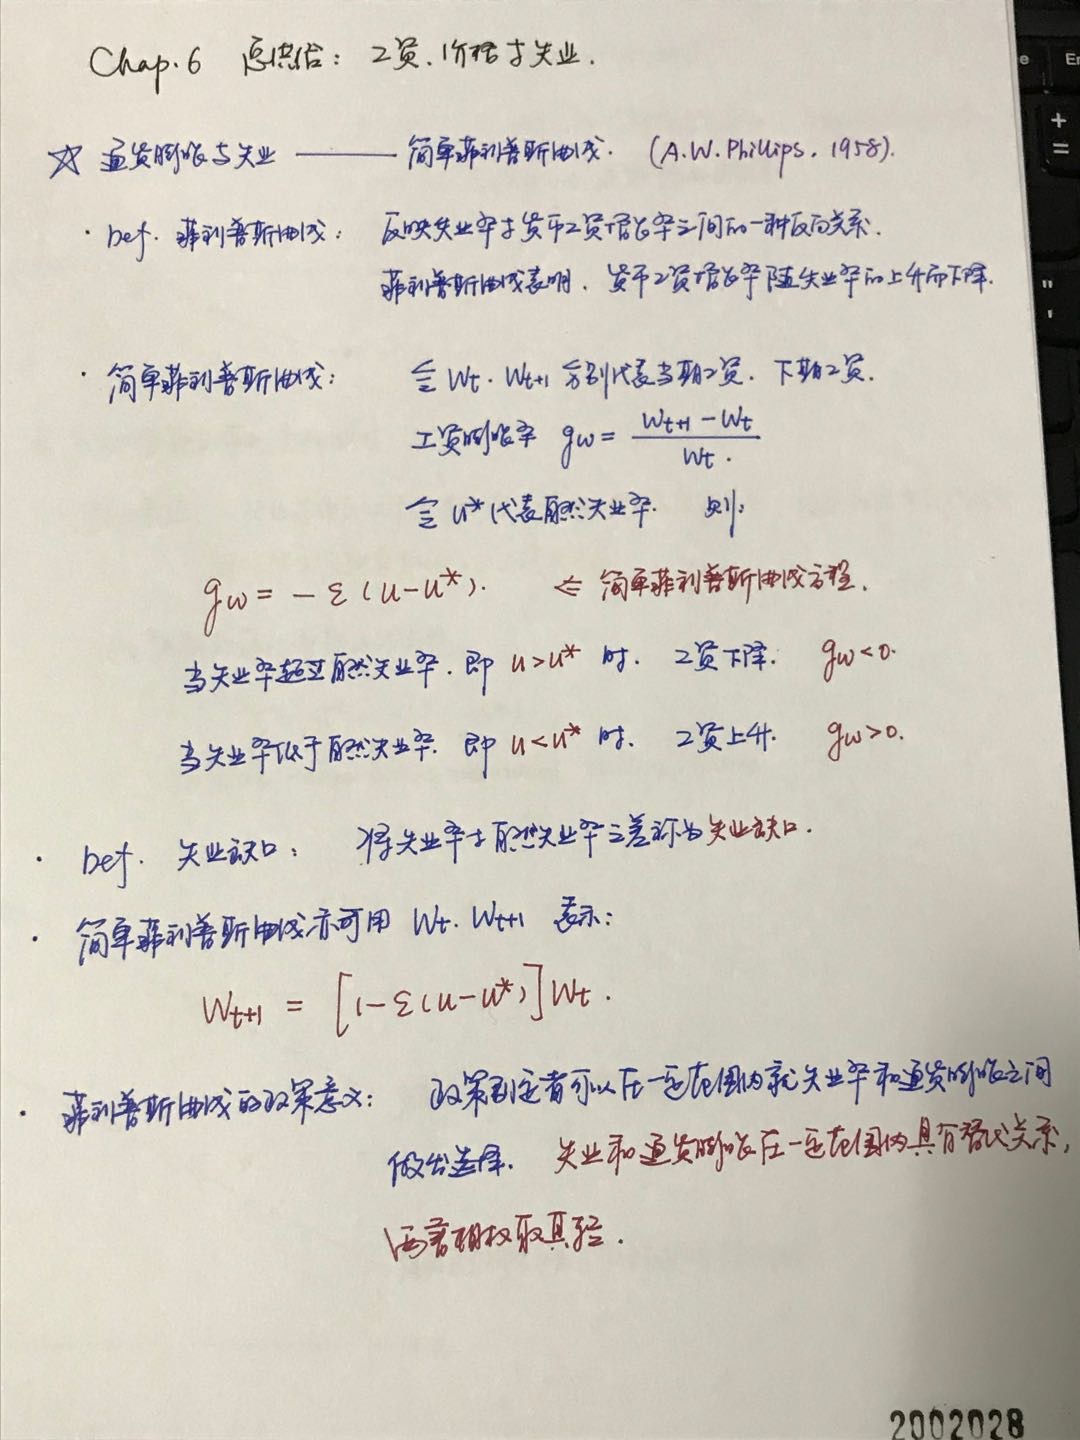 Chap.6 总供给：工资、价格与失业.
☆ 通货膨胀与失业 —— 简单菲利普斯曲线. (A.W.Phillips. 1958).
· Def. 菲利普斯曲线： 反映失业率与货币工资增长率之间的一种反向关系.
菲利普斯曲线表明, 货币工资增长率随失业率的上升而下降.
· 简单菲利普斯曲线： 令 Wt. Wt+1 分别代表当期工资. 下期工资.
工资膨胀率 gw = (Wt+1 - Wt) / Wt.
令 u* 代表自然失业率. 则：
gw = - ε (u-u*). ⇐ 简单菲利普斯曲线方程.
当失业率超过自然失业率. 即 u>u* 时. 工资下降. gw<0.
当失业率低于自然失业率. 即 u<u* 时. 工资上升. gw>0.
· Def. 失业缺口： 将失业率与自然失业率之差称为失业缺口.
· 简单菲利普斯曲线亦可用 Wt. Wt+1 表示：
Wt+1 = [1-ε(u-u*)]Wt.
· 菲利普斯曲线的政策意义： 政策制定者可以在一定范围内就失业率和通货膨胀之间
做出选择. 失业和通货膨胀在一定范围内具有替代关系,
两害相权取其轻.
2002028
e
En
+
=
"
'